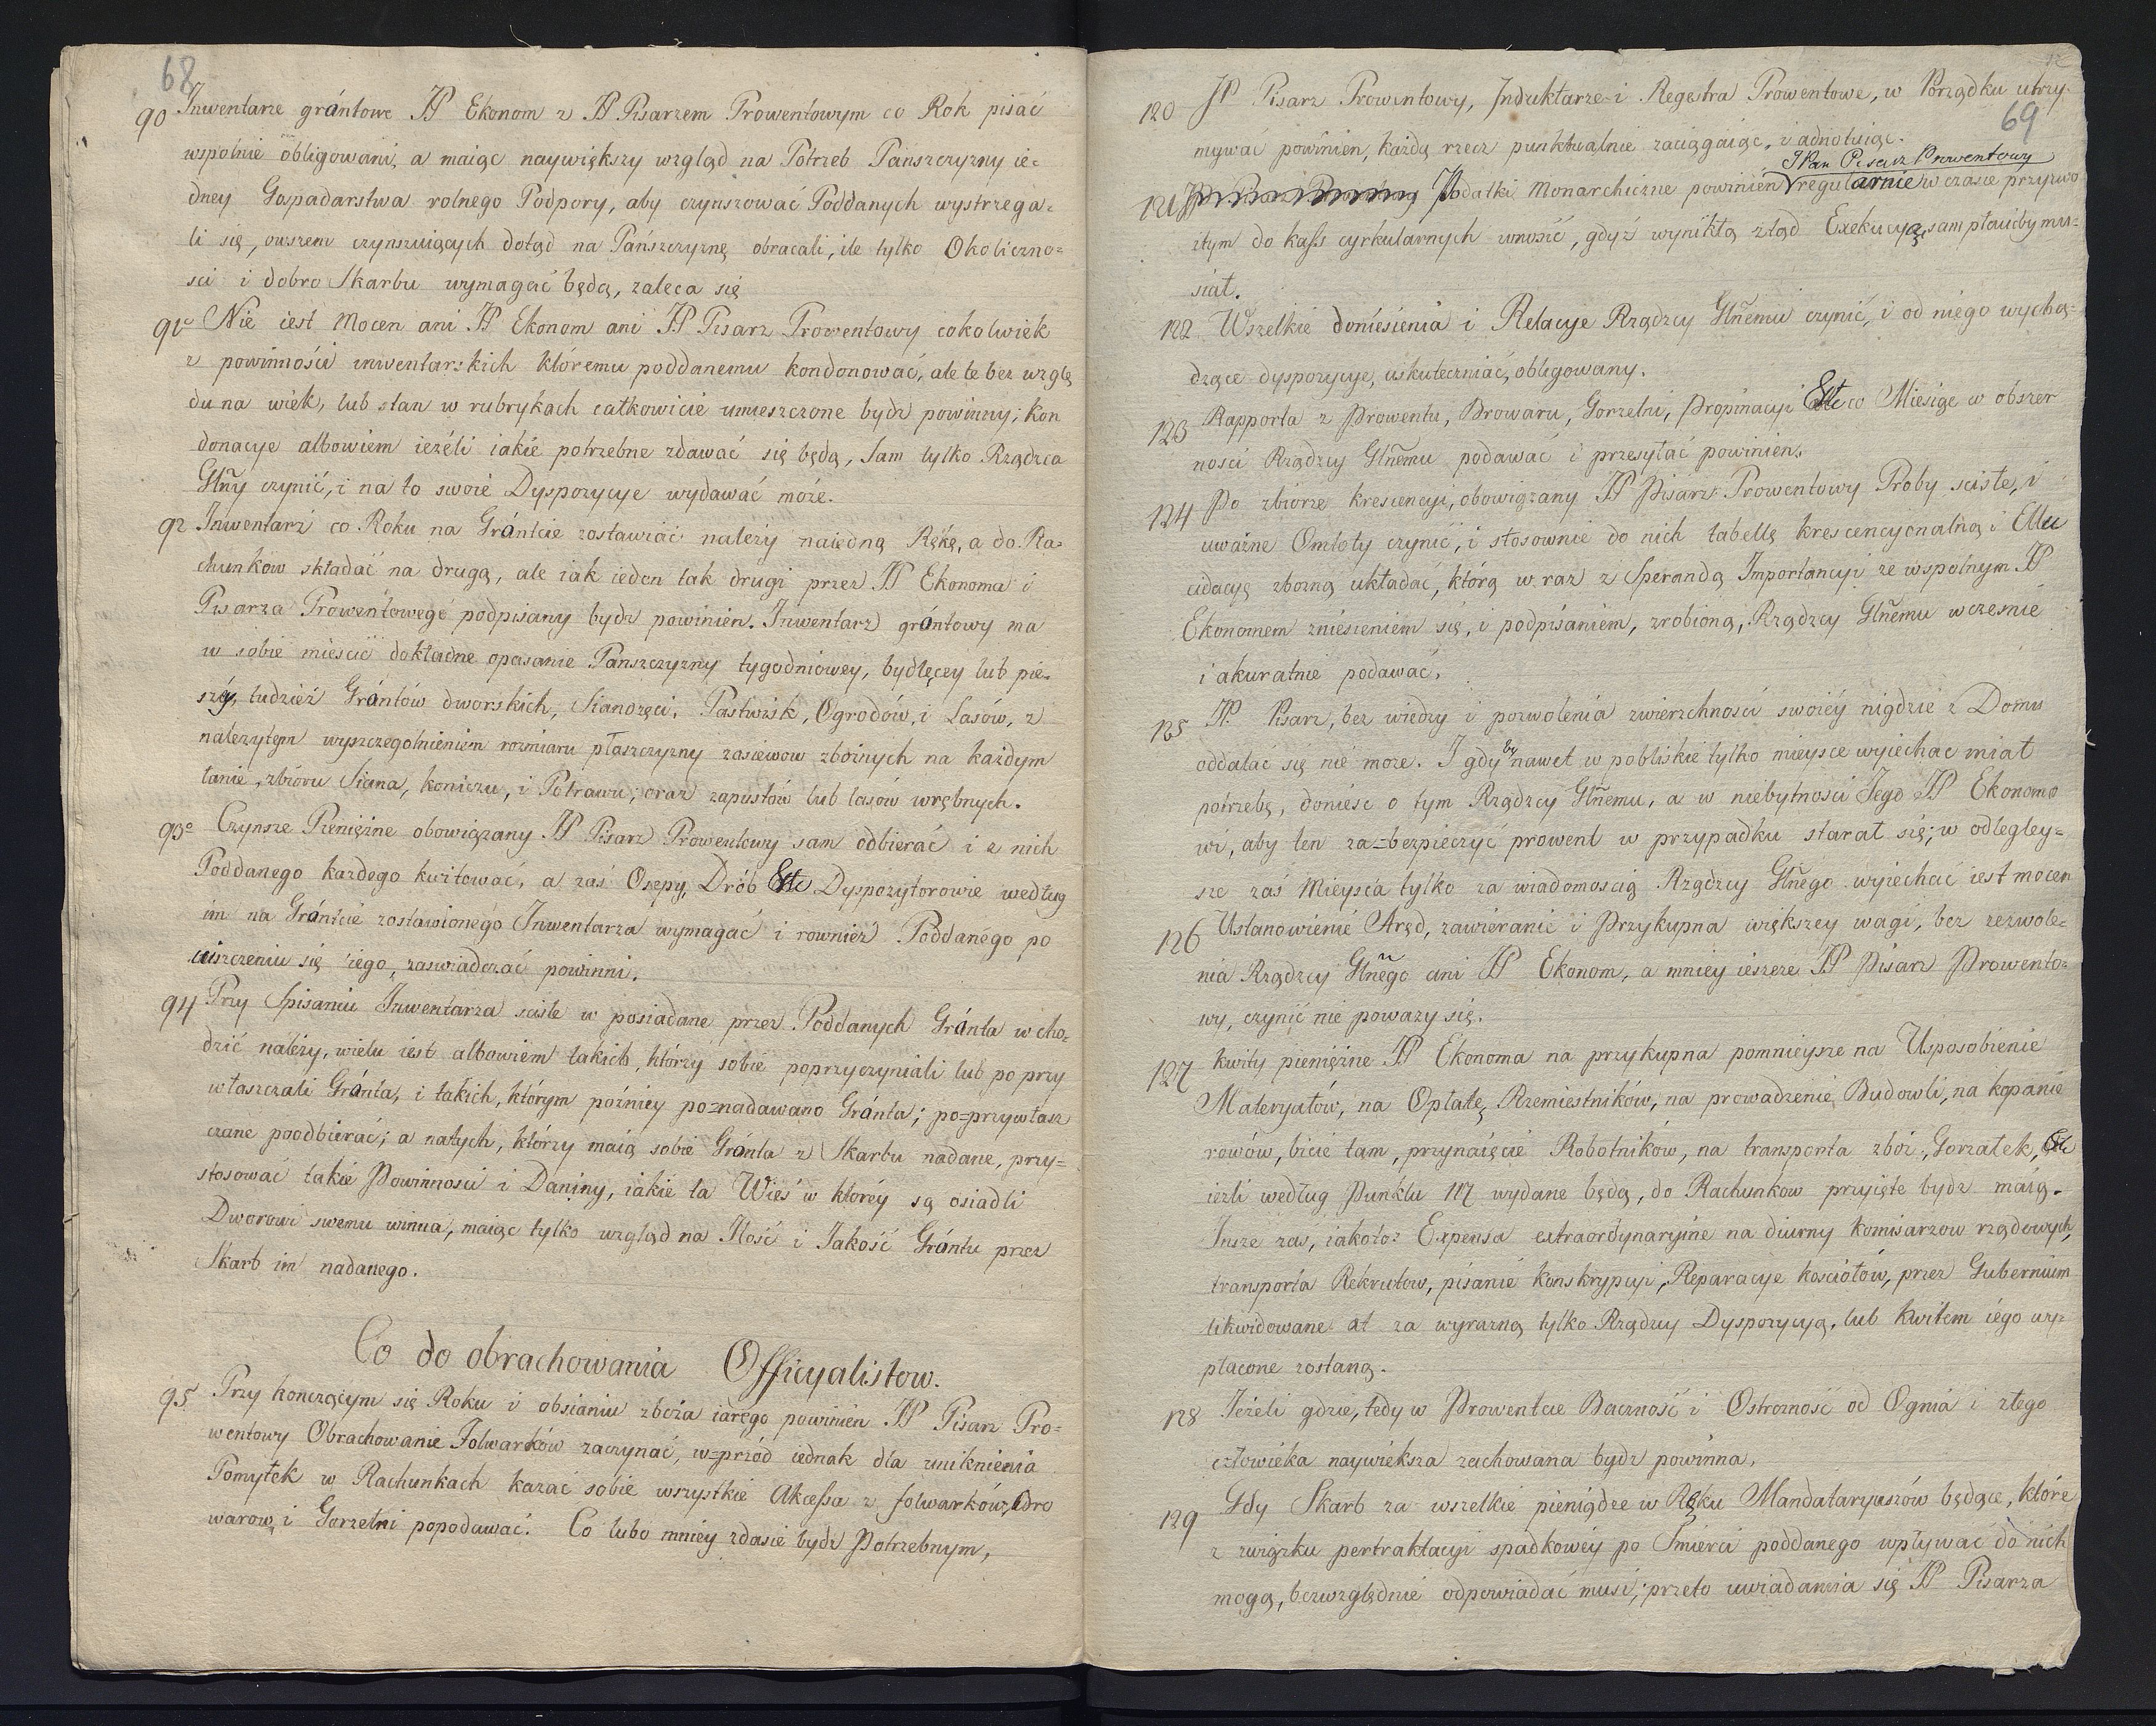 68
90 Inwentarze grántowe JP Ekonom z JP Pisarzem Prowentowym co Rok pisać
wspolnie obligowani, a maiąc naywiększy wzgląd na Potrzeb Panszczyzny ie-
dney Gospadarstwa rolnego Podpory, aby czynszować Poddanych wystrzega-
li się, owszem czynszuiących dotąd na Pańszczyznę obracali, ile tylko Okoliczno-
sci i dobro Skarbu wymagać będą, zaleca się
91o Nie iest Mocen ani JP Ekonom ani JP Pisarz Prowentowy cokolwiek
z powinności inwentarskich któremu poddanemu kondonować, ale te bez wzglę
du na wiek, lub stan w rubrykach całkowicie umieszczone bydź powinny; Kon
donacye albowiem ieżeli iakie potrzebne zdawać się będą, Sam tylko Rządzca
Głny czynić, i na to swoie Dyspozycye wydawać może.
92 Inwentarz co Roku na Gránćie zostawiać należy na iedną Rękę, a do Ra-
chunkow składać na drugą, ale iak ieden tak drugi przez JP Ekonoma i
Pisarza Prowentowego podpisany bydz powinien. Inwentarz grántowy ma
w sobie mieścić dokładne opisanie Panszczyzny tygodniowey, bydlęcey lub pie-
széy, tudzież Grántów dworskich, Sianożęci, Pastwisk, Ogrodów, i Lasów, z
nalezytem wyszczegolnieniem rozmiaru płaszczyzny zasiewow zbóżnych na każdym
łanie, zbioru Siana, koniczu, i Potrawu, oraz zapustów lub lasów wrębnych.
93o Czynsze Pieniężne obowiązany JP Pisarz Prowentowy sam odbierać i z nich
Poddanego każdego kwitować, a zaś Osepy, Drób Etc Dyspozytorowie według
im na Gránćie zostawionego Inwentarza wymagać i rownież Poddanego po
uiszczeniu się iego, zaswiadczać powinni.
94 Przy Spisaniu Inwentarza scisle w posiadane przez Poddanych Gránta wcho-
dzić należy, wielu iest albowiem takich, którzy sobie poprzyczyniali lub poprzy
właszczali Gránta, i takich, którym poźniey po=nadawano Gránta; po=przywłasz
czane poodbierać; a natych, którzy maią sobie Gránta z Skarbu nadane, przy-
stosować takie Powinnosci i Daniny, iakie ta Wieś w któréy są osiadli
Dworowi swemu winna, maiąc tylko wzgląd na Ilość i Jakość Grántu przez
Skarb im nadanego.
Co do obrachowania Officyalistow.
95 Przy konczącym się Roku i obsianiu zboża iarego powinien JP Pisarz Pro-
wentowy Obrachowanie Folwarków zaczynać, w=przód iednak dla uniknienia
Pomyłek w Rachunkach kazać sobie wszystkie Akcessa z folwarków, Bro
warow, i Gorzelni popodawać. Co lubo mniéy zdasie bydź Potrzebnym,
69
120 JP Pisarz Prowentowy, Induktarze i Regestra Prowentowe, w Porządku utrzy-
mywać powinien, każdą rzecz punktualnie zaciągaiąc, i adnotuiąc.
JPan Pisarz Prowentowy
121 Podatki Monarchiczne powinien regularnie w czasie przyzwo
itym do kass cyrkularnych wnosić, gdyż wynikłą ztąd Exekucyą, sam płacićby mu-
siał.
122 Wszelkie doniesienia i Relacye Rządzcy Głnemu czynić, i od niego wycho-
dzące dyspozycye, uskuteczniać, obligowany.
123 Rapporta z Prowentu, Browaru, Gorzelni, Propinacyi Etc co Miesiąc w obszer
nosci Rządzcy Głnemu podawać i przesyłać powinien.
124 Po zbiorze krescencyi, obowiązany JP Pisarz Prowentowy Próby scisłe, i
uważne Omłoty czynić, i stosownie do nich tabellę krescencyonalną i Ellu
cidacyę zbożną układać, którą wraz z Sperandą Importancyi ze wspolnym JP
Ekonomem zniesieniem się, i podpisaniem, zrobioną, Rządzcy Głnemu wczesnie
i akuratnie podawać.
125 JP. Pisarz, bez wiedzy i pozwolenia zwierzchności swoiéy nigdzie z Domu
oddalać się nie może. I gdyby nawet w pobliskie tylko mieysce wyiechać miał
potrzebę, donieśc o tym Rządzcy Głnemu, a w niebytności Jego JP Ekonomo
wi, aby ten za=bezpieczyć prowent w przypadku starał się; w odlegley-
sze zaś Mieysca tylko za wiadomoscią Rządzcy Głnego wyiechać iest mocen
126 Ustanowienie Aręd, zawieranie i Przykupna większey wagi, bez zezwole-
nia Rządzcy Głnego ani JP Ekonom, a mniey ieszcze JP Pisarz Prowento-
wy, czynić nie poważy się.
127 Kwity pieniężne JP Ekonoma na przykupna pomnieysze na Usposobienie
Materyałów, na Opłatę Rzemieslników, na prowadzenie Budowli, na kopanie
rowów, bicie tam, przynaięcie Robotników, na transporta zbóż, Gorzałek, Etc
ieżli według Punktu 117 wydane będą, do Rachunkow przyięte bydz maią.
Insze zas, iakoto: Expensa extraordynaryine na diurny Komisarzow rządowych,
transporta Rekrutow, pisanie Konskrypcyi, Reparacye kosciołów, przez Gubernium
likwidowane at za wyrazną tylko Rządzcy Dyspozycyą, lub kwitem iego wy-
płacone zostaną.
128 Jeżeli gdzie, tedy w Prowentcie Baczność i Ostrozność od Ognia i złego
człowieka naywiększa zachowana bydz powinna.
129 Gdy Skarb za wszelkie pieniądze w Ręku Mandataryuszów będące, które
z związku pertraktacyi spadkowéy po Smierci poddanego wpływać do nich
mogą, bezwzględnie odpowiadać musi; przeto uwiadamia się JP Pisarza